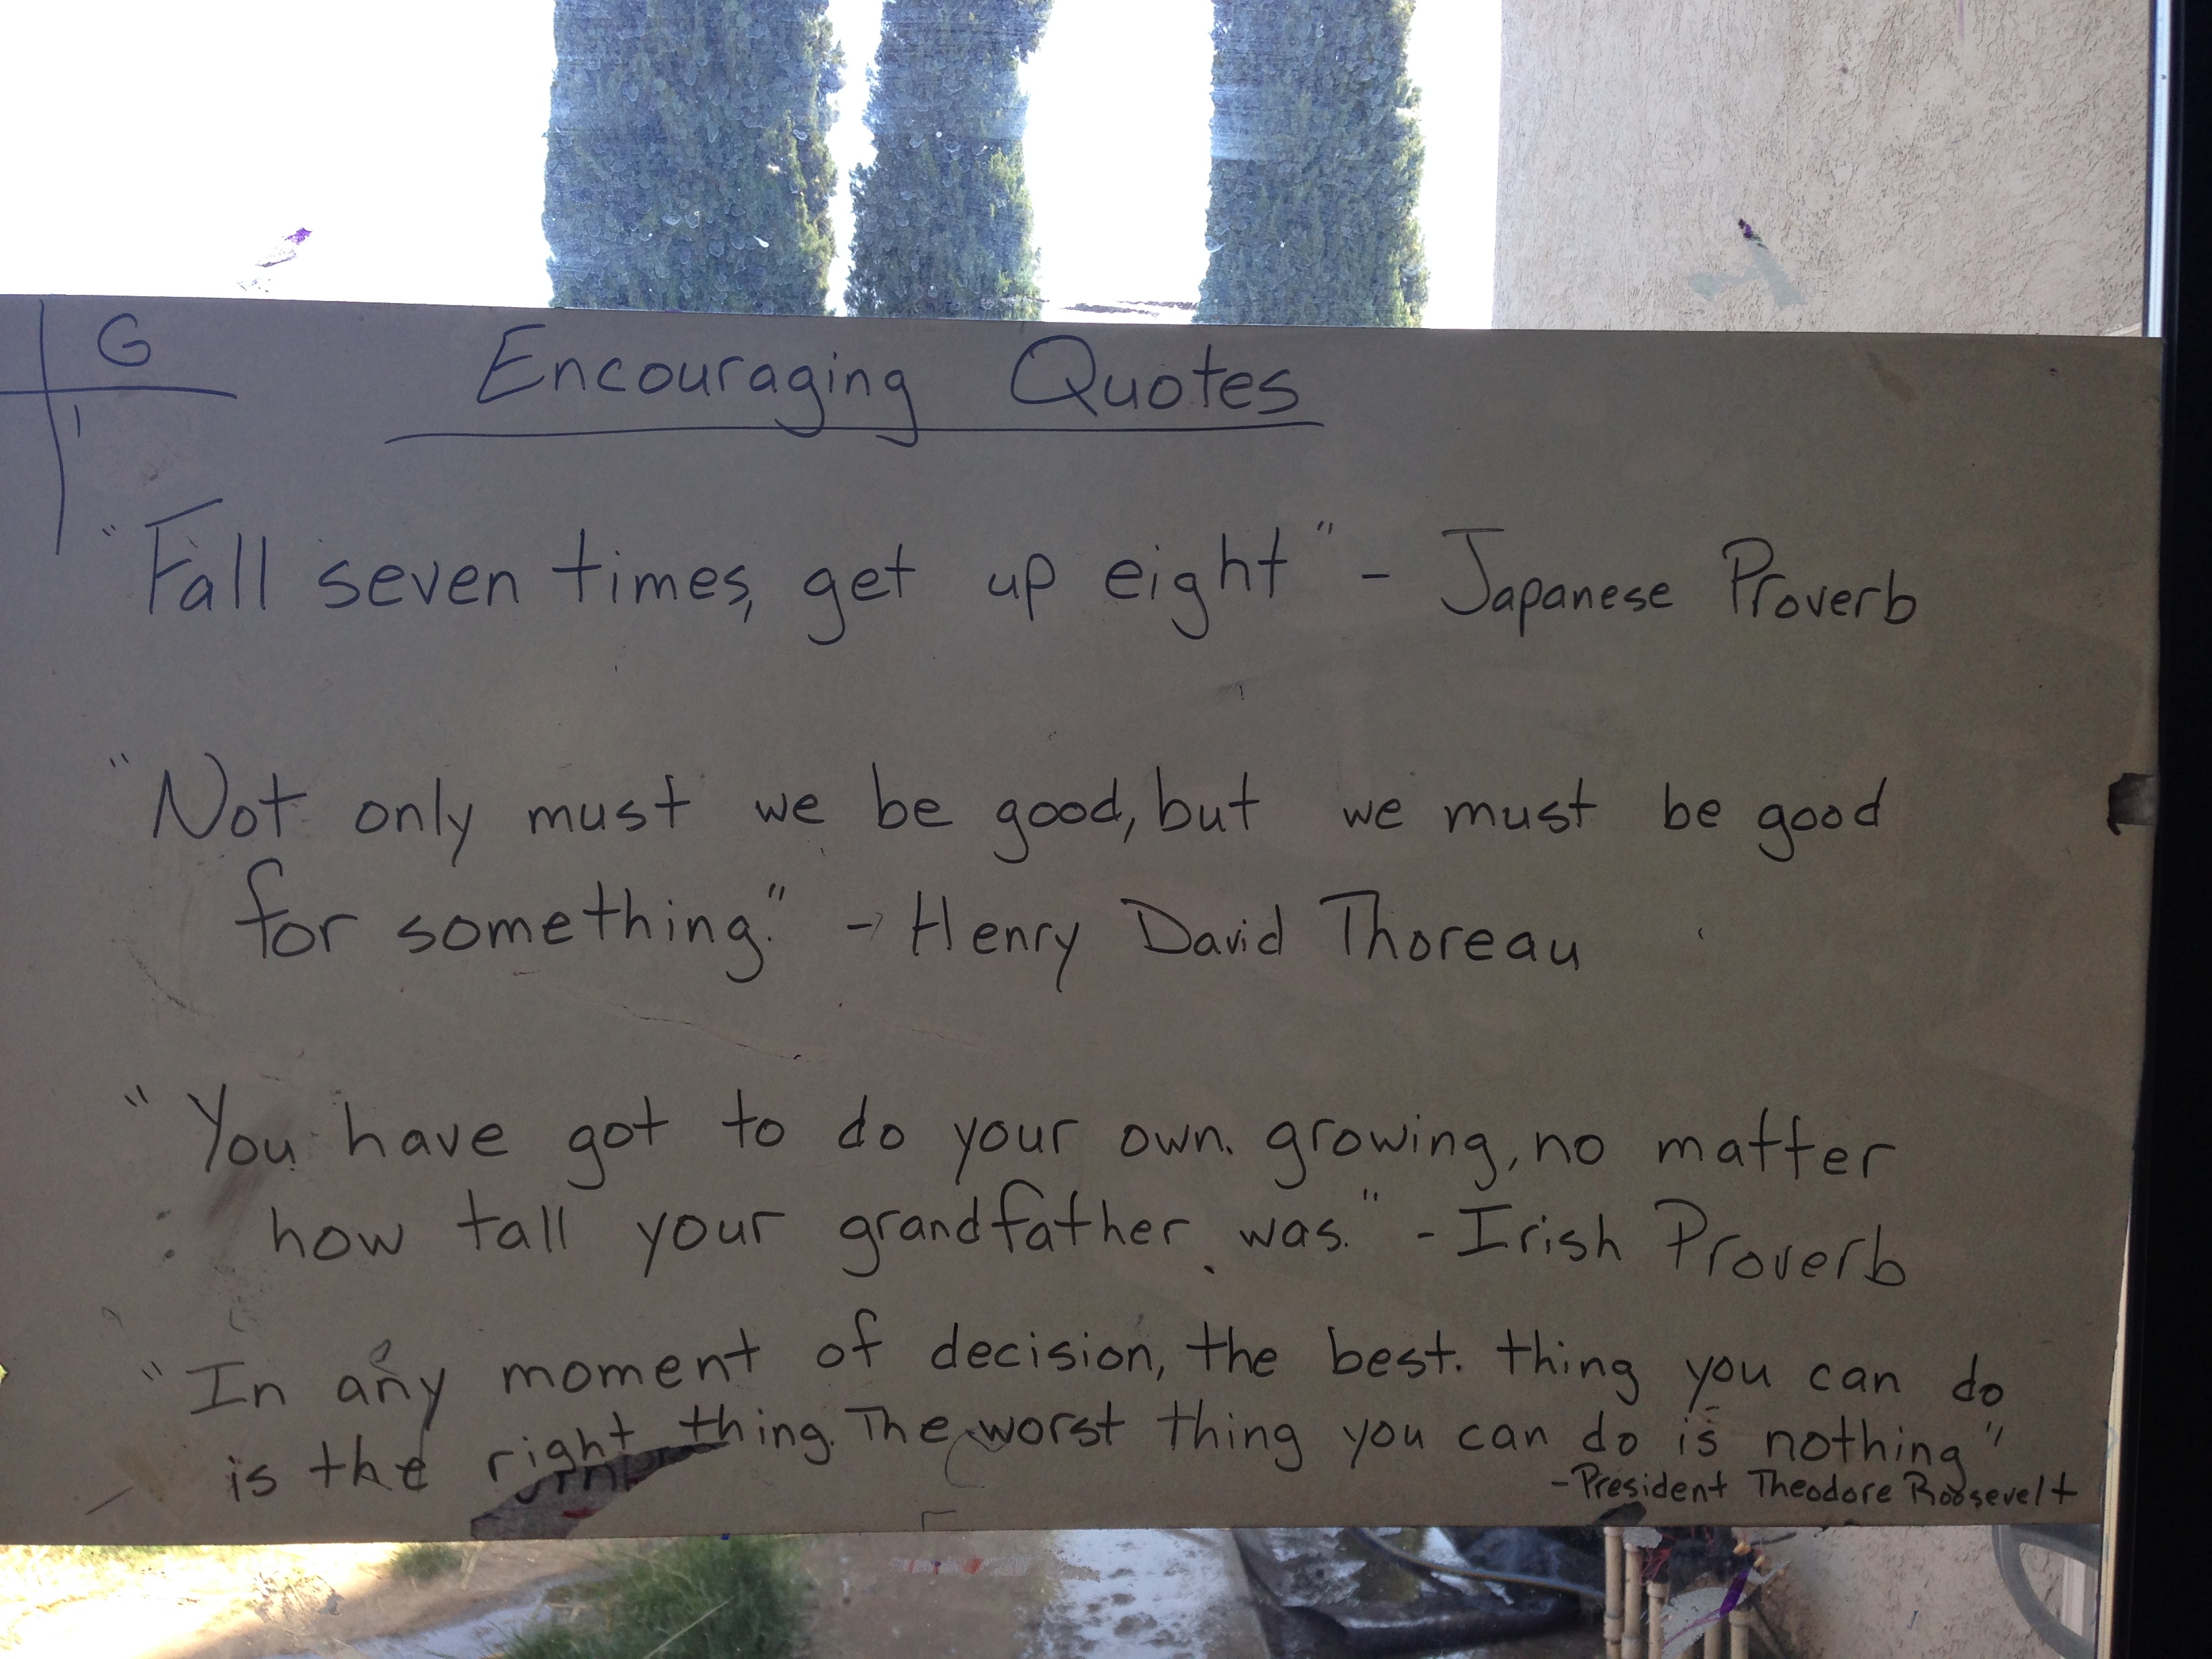 G
Encouraging Quotes
1
"Fall seven times, get up eight" - Japanese Proverb
"Not only must we be good, but we must be good
for something." - Henry David Thoreau
"You have got to do your own growing, no matter
how tall your grandfather was." - Irish Proverb
"In any moment of decision, the best thing you can do
is the right thing. The worst thing you can do is nothing"
-President Theodore Roosevelt